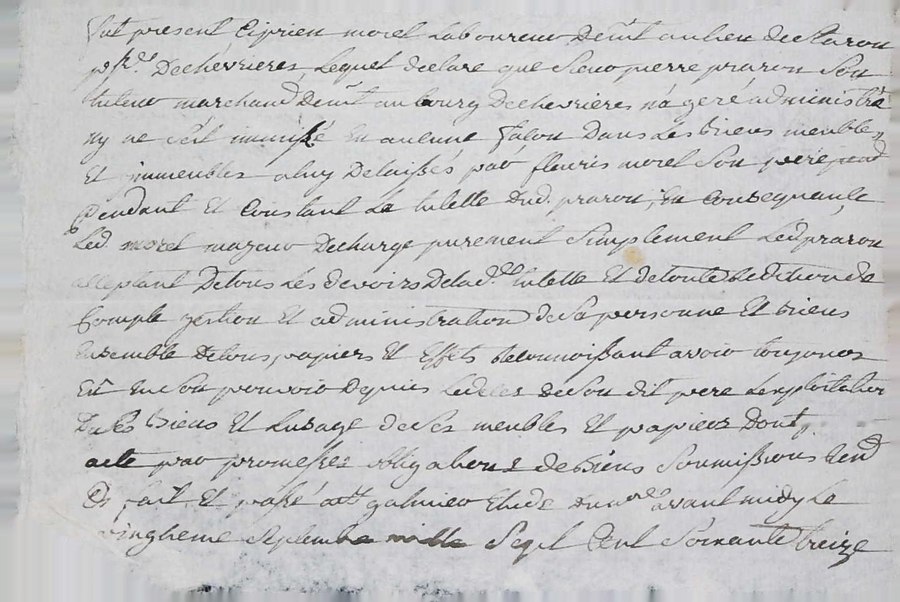 fut present Ciprien morel Laboureur deût au lieu de
psse. De chevrieres, Lequel declare que Sieur pierre praron Son
tuteur marchand deût au bourg De chevrieres n'a geré administré
ny ne s'est immissé En aucune façon Dans Les biens meubles
Et immeubles a luy Delaissés par fleuris morel Son pere
Pendant Et Constant La tutelle Dud. praron, En consequance
Led morel majeur Decharge purement Simplement Led praron
acceptant De tous Les devoirs De lad.e tutelle Et de toute Reddition de
Compte gestion Et administration de Sa personne Et biens
Ensemble de tous papiers Et Effets Reconnoissant avoir toujours
Eû En Son pouvoir Depuis Le deces de Son dit pere
De Ses biens Et Lusage de Ses meubles Et papiers Dont
acte par promesses obligations de biens Soumissions
Et fait Et passé a St galmier Etude avant midy Le
vingtieme Septembre mille Sept Cent Soixante treize